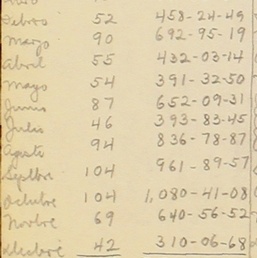 Febrero 52 458-24-49
Marzo 90 692-95-19
Abril 55 432-03-14
Mayo 54 391-32-50
Junio 87 652-09-31
Julio 46 393-83-45
Agsto 94 836-78-87
Septbre 104 961-89-57
Octubre 104 1,080-41-08
Novbre 69 640-56-52
Dicbre 42 310-06-68